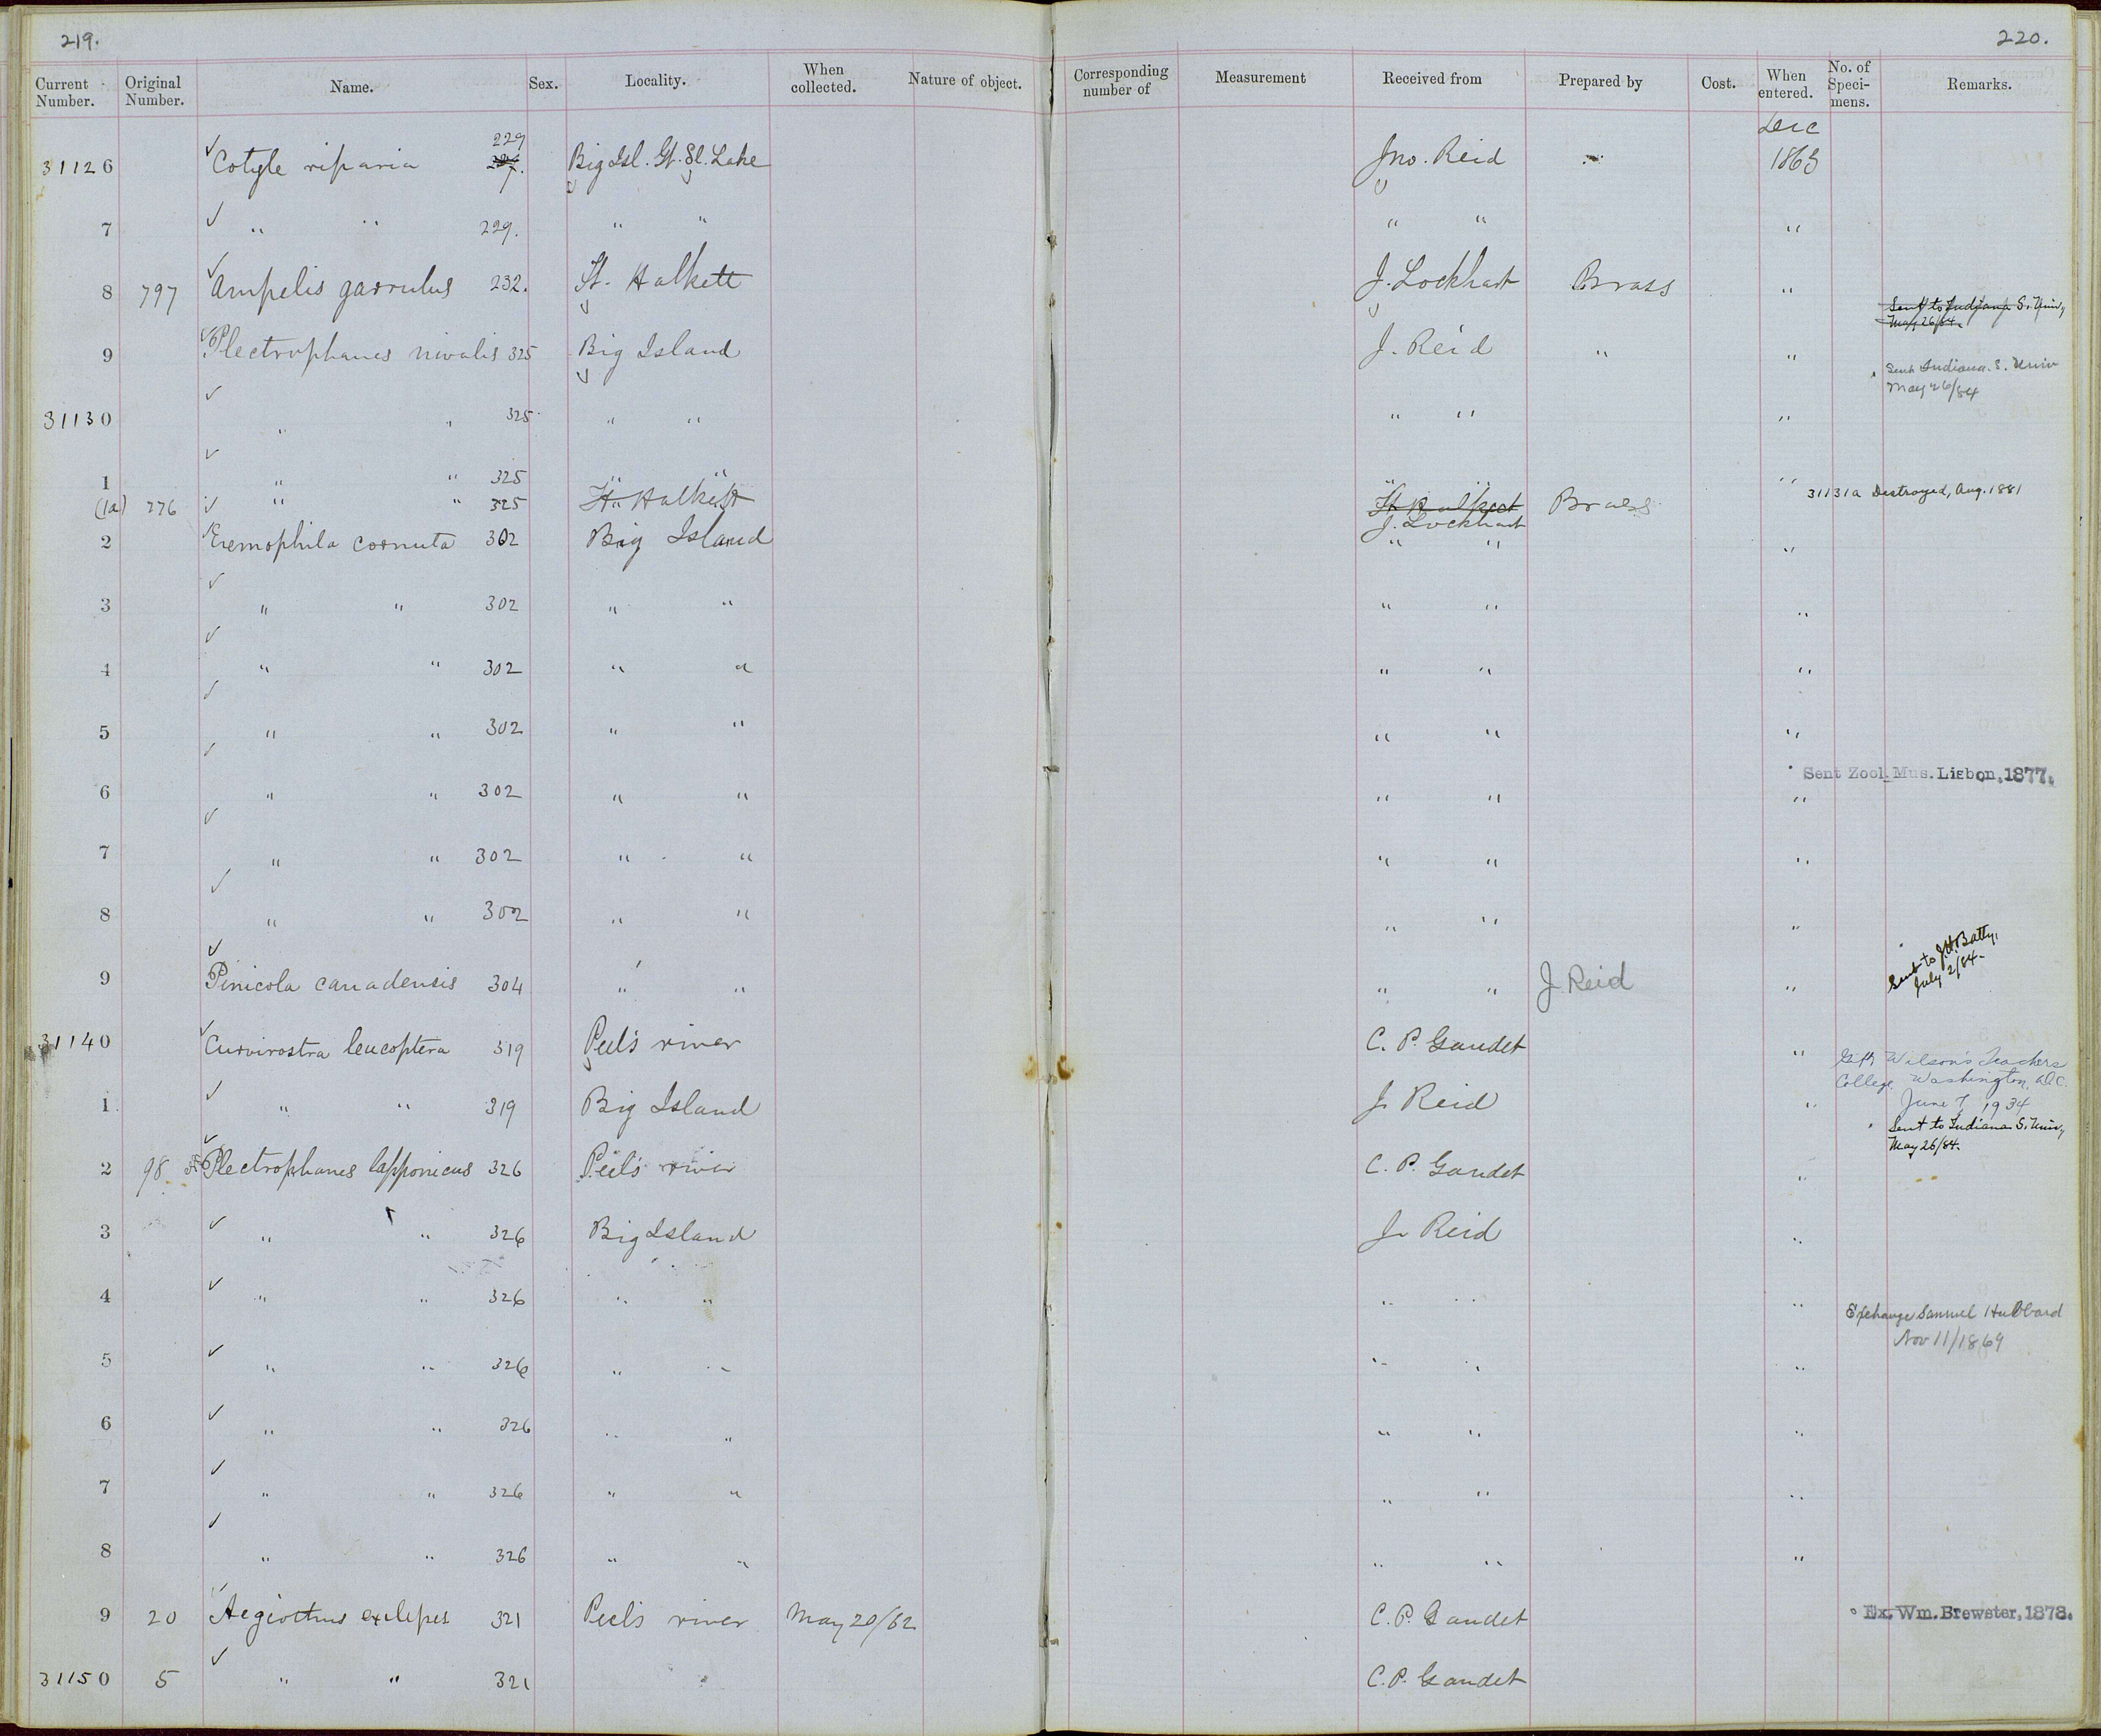 219.
220.
Current Number. Original Number. Name. Sex. Locality. When collected. Nature of object. Corresponding number of Measurement Received from Prepared by Cost. When entered. No. of Specimens. Remarks.
Dec
229
31126 ✓ Cotyle riparia Big Isl. Gt. Sl. Lake Jno. Reid 1863
7 ✓ " " 229. " " " " "
8 797 ✓ Ampelis garrulus 232. Ft. Halkett J. Lockhart Brass "
Sent to Indiana S. Univ,
May 26/84.
9 ✓ Plectrophanes nivalis 325 Big Island J. Reid " "
Sent Indiana. S. Univ
May 26/84
31130 ✓ " " 325 " " " " "
1 ✓ " " 325 " " " " "
(1a) 776 ✓ " " 325 Ft. Halkett Ft Halkett Brass 31131a Destroyed, Aug. 1881
J. Lockhart
2 ✓ Eremophila cornuta 302 Big Island " " "
3 ✓ " " 302 " " " " "
4 ✓ " " 302 " " " " "
5 ✓ " " 302 " " " " "
Sent Zool. Mus. Lisbon, 1877.
6 ✓ " " 302 " " " " "
7 ✓ " " 302 " " " " "
8 ✓ " " 302 " " " " "
Sent to J.H. Batty,
July 2/84.
9 ✓ Pinicola canadensis 304 " " " " J Reid "
31140 ✓ Curvirostra leucoptera 319 Peel's river C. P. Gaudet "
Gift Wilson's Teachers
College, Washington, D.C.
June 7, 1934
1 ✓ " " 319 Big Island J. Reid "
Sent to Indiana S. Univ,
May 26/84.
2 98 ✓ Plectrophanes lapponicus 326 Peel's river C. P. Gaudet "
3 ✓ " " 326 Big Island J. Reid "
4 ✓ " " 326 " " " " "
Exchange Samuel Hubbard
Nov 11/1869
5 ✓ " " 326 " " " " "
6 ✓ " " 326 " " " " "
7 ✓ " " 326 " " " " "
8 ✓ " " 326 " " " " "
9 20 ✓ Aegiothus exilipes 321 Peel's river May 20/62 C. P. Gaudet Ex. Wm. Brewster, 1878.
31150 5 ✓ " " 321 " C. P. Gaudet